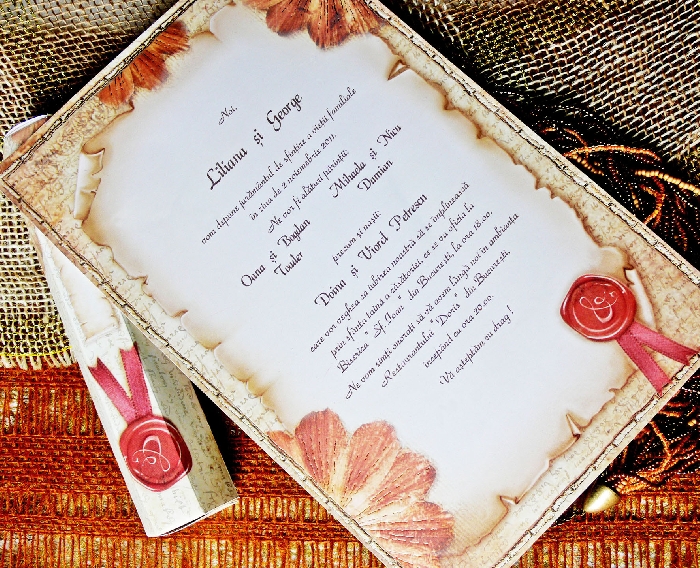 Noi,
Liliana și George
vom depune jurământul de sfințire a vieții familiale
în ziua de 2 noiembrie 2011.
Ne vor fi alături părinții:
Oana și Bogdan Mihaela și Nicu
Toader Damian
precum și nașii:
Doina și Viorel Petrescu
care vor veghea ca iubirea noastră să se împlinească
prin sfânta taină a căsătoriei ce se va oficia la
Biserica "Sf. Ioan" din București, la ora 18.00.
Ne vom simți onorați să vă avem lângă noi în ambianța
Restaurantului "Doris" din București,
începând cu ora 20.00.
Vă așteptăm cu drag!